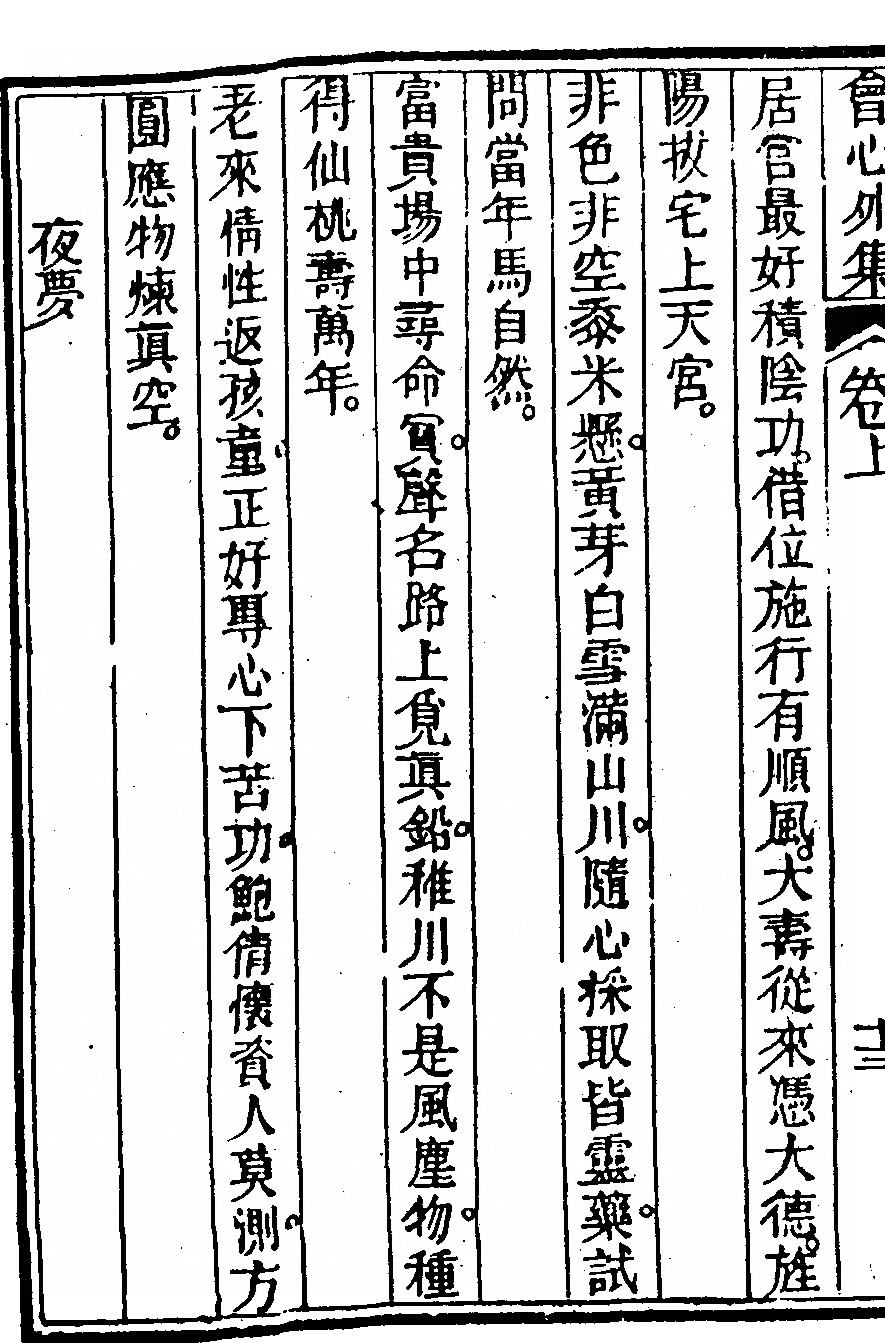 會心外集 卷上 十二
居官最好積陰功。借位施行有順風。大壽從來憑大德。旌
陽拔宅上天宮。
非色非空黍米懸。黃芽白雪滿山川。隨心採取皆靈藥。試
問當年馬自然。
富貴場中尋命寶。聲名路上覓真鉛。稚川不是風塵物。種
得仙桃壽萬年。
老來情性返孩童。正好專心下苦功。鮑倩懷資人莫測。方
圓應物煉真空。
夜夢